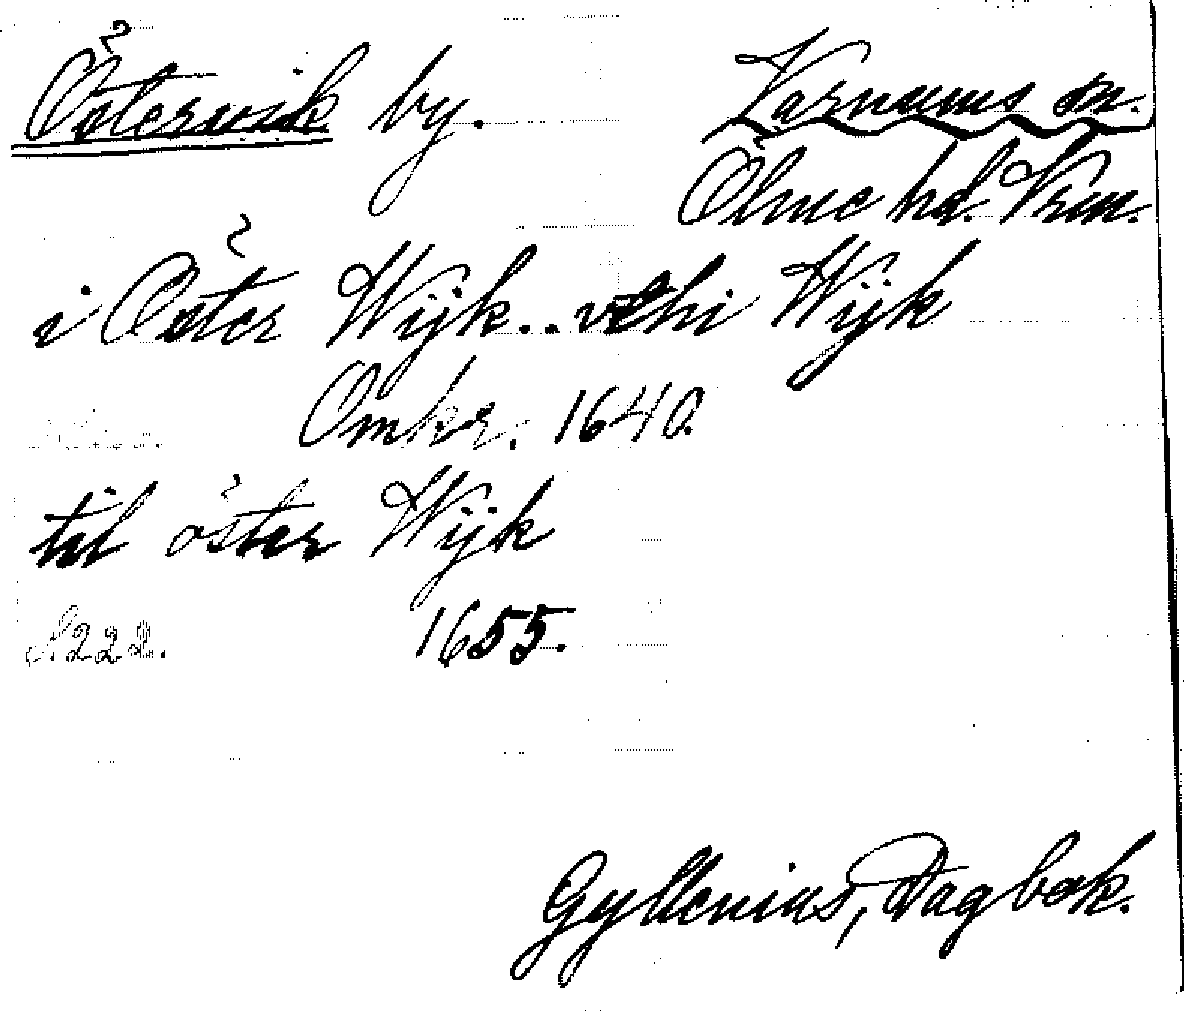 Östervik by. Varnums sn.
Ölme hd. Vrm.
i Öster Wijk.. vthi Wijk
Omkr. 1640.
til öster Wijk
S. 222. 1655.
Gyllenius, Dagbok.